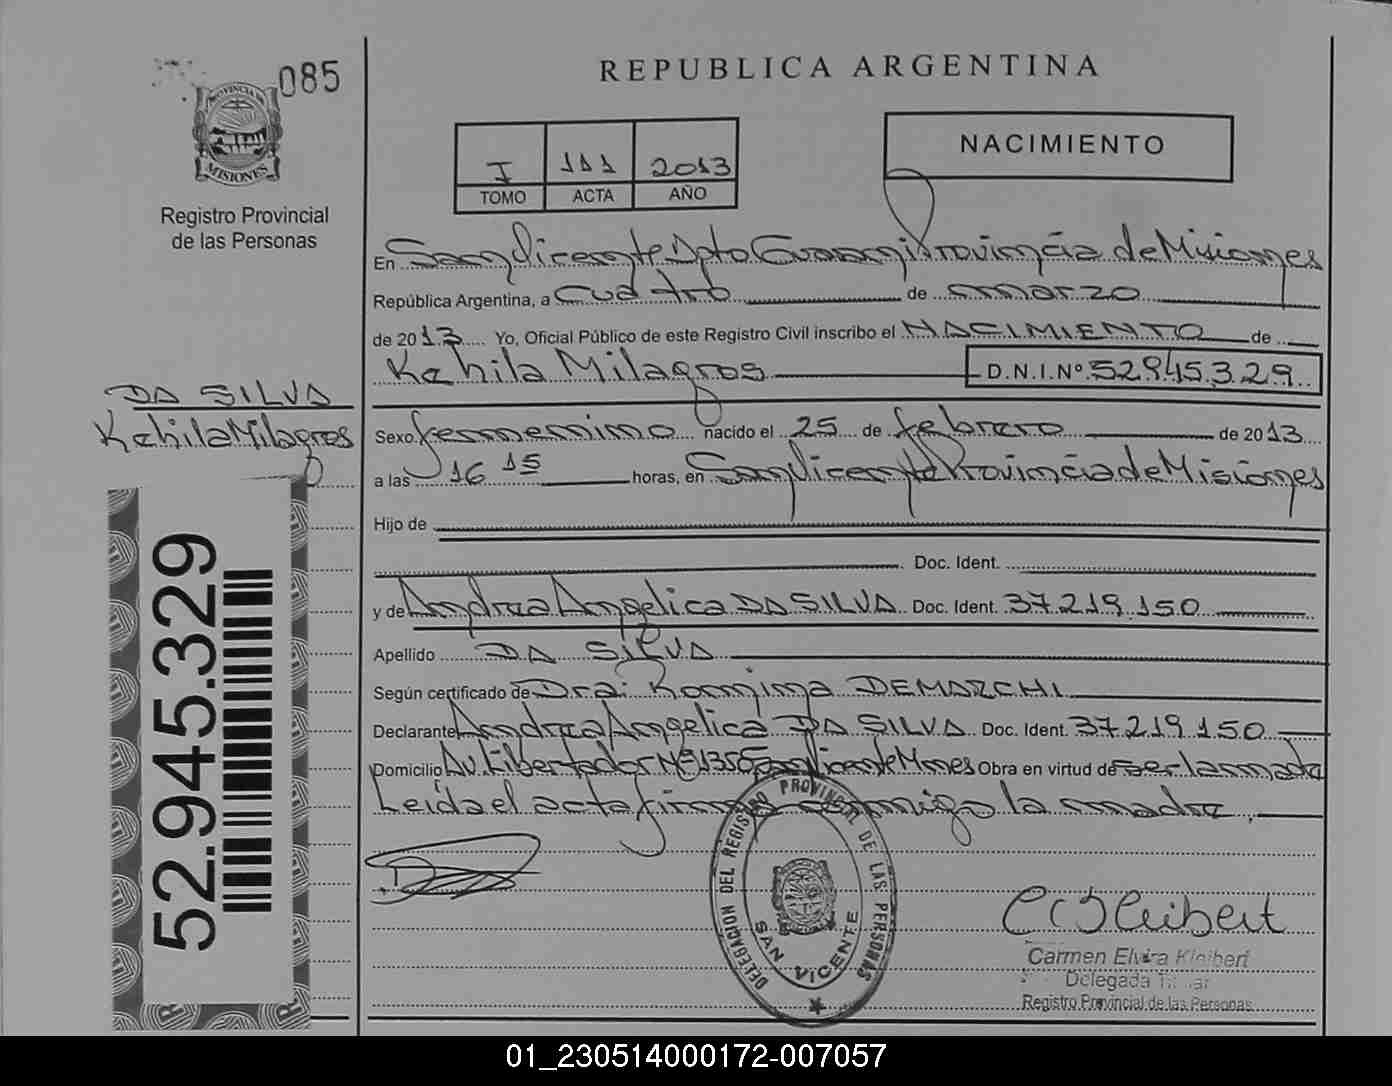 085
PROVINCIA DE
MISIONES
Registro Provincial
de las Personas
REPUBLICA ARGENTINA
I 111 2013
TOMO ACTA AÑO
NACIMIENTO
En San Vicente Dpto Guarani Provincia de Misiones
República Argentina, a cuatro de marzo
de 2013 Yo, Oficial Público de este Registro Civil inscribo el NACIMIENTO de
Kehila Milagros D.N.I.Nº 52.945.329
DA SILVA
Kehila Milagros
Sexo femenino nacido el 25 de febrero de 2013
a las 16 15 horas, en San Vicente Provincia de Misiones
Hijo de
Doc. Ident.
y de Andrea Angelica DA SILVA Doc. Ident. 37.219.150
Apellido DA SILVA
Según certificado de Dra. Romina DEMARCHI
Declarante Andrea Angelica DA SILVA Doc. Ident. 37.219.150
Domicilio Av. Libertador Nº 1350 San Vicente Mnes Obra en virtud de ser la madre
Leida el acta firma conmigo la madre
52.945.329
DELEGACION DEL REGISTRO PROVINCIAL DE LAS PERSONAS
SAN VICENTE
Carmen Elvira Kleibert
Delegada Titular
Registro Provincial de las Personas
01_230514000172-007057